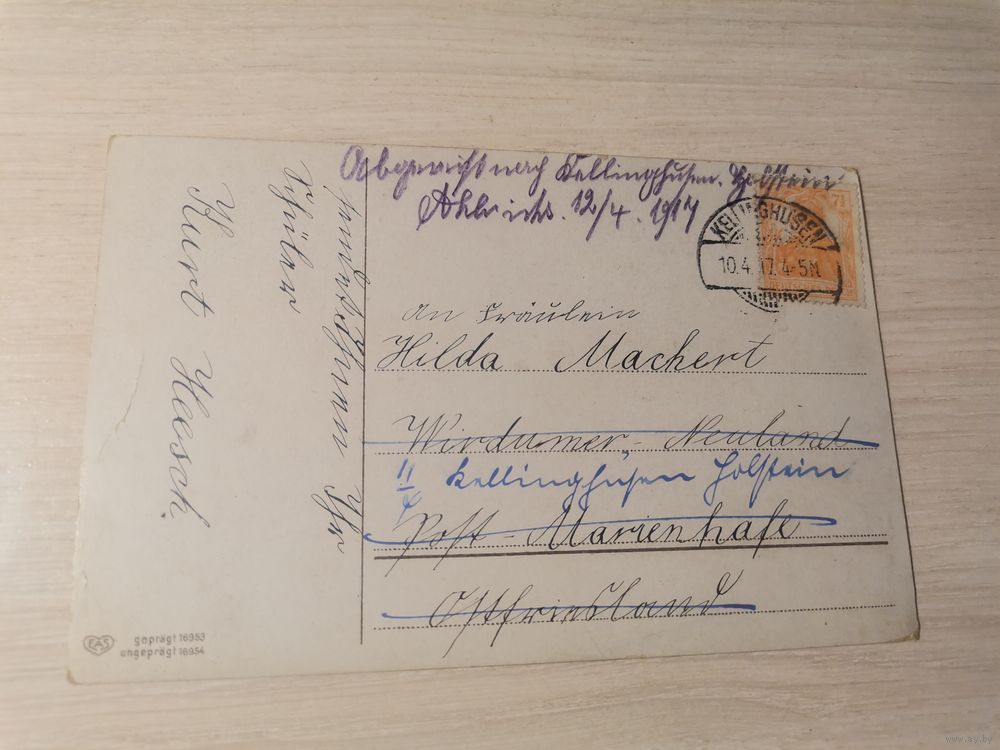 Abgereist nach Kellinghusen. Holstein
Ahlrichs. 12/4. 1917
7½
KELLINGHUSEN
10.4.17.4-5N
An Fräulein
Hilda Machert
Wirdumer-Neuland
11/4 Kellinghusen Holstein
Post-Marienhafe
Ostfriesland
sendet Ihnen Ihr
Schüler
Kurt Heesch.
EAS
geprägt 16953
ungeprägt 16954
www.ay.by